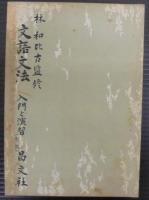 林 和比古監修
文語文法
入門と演習
昌文社